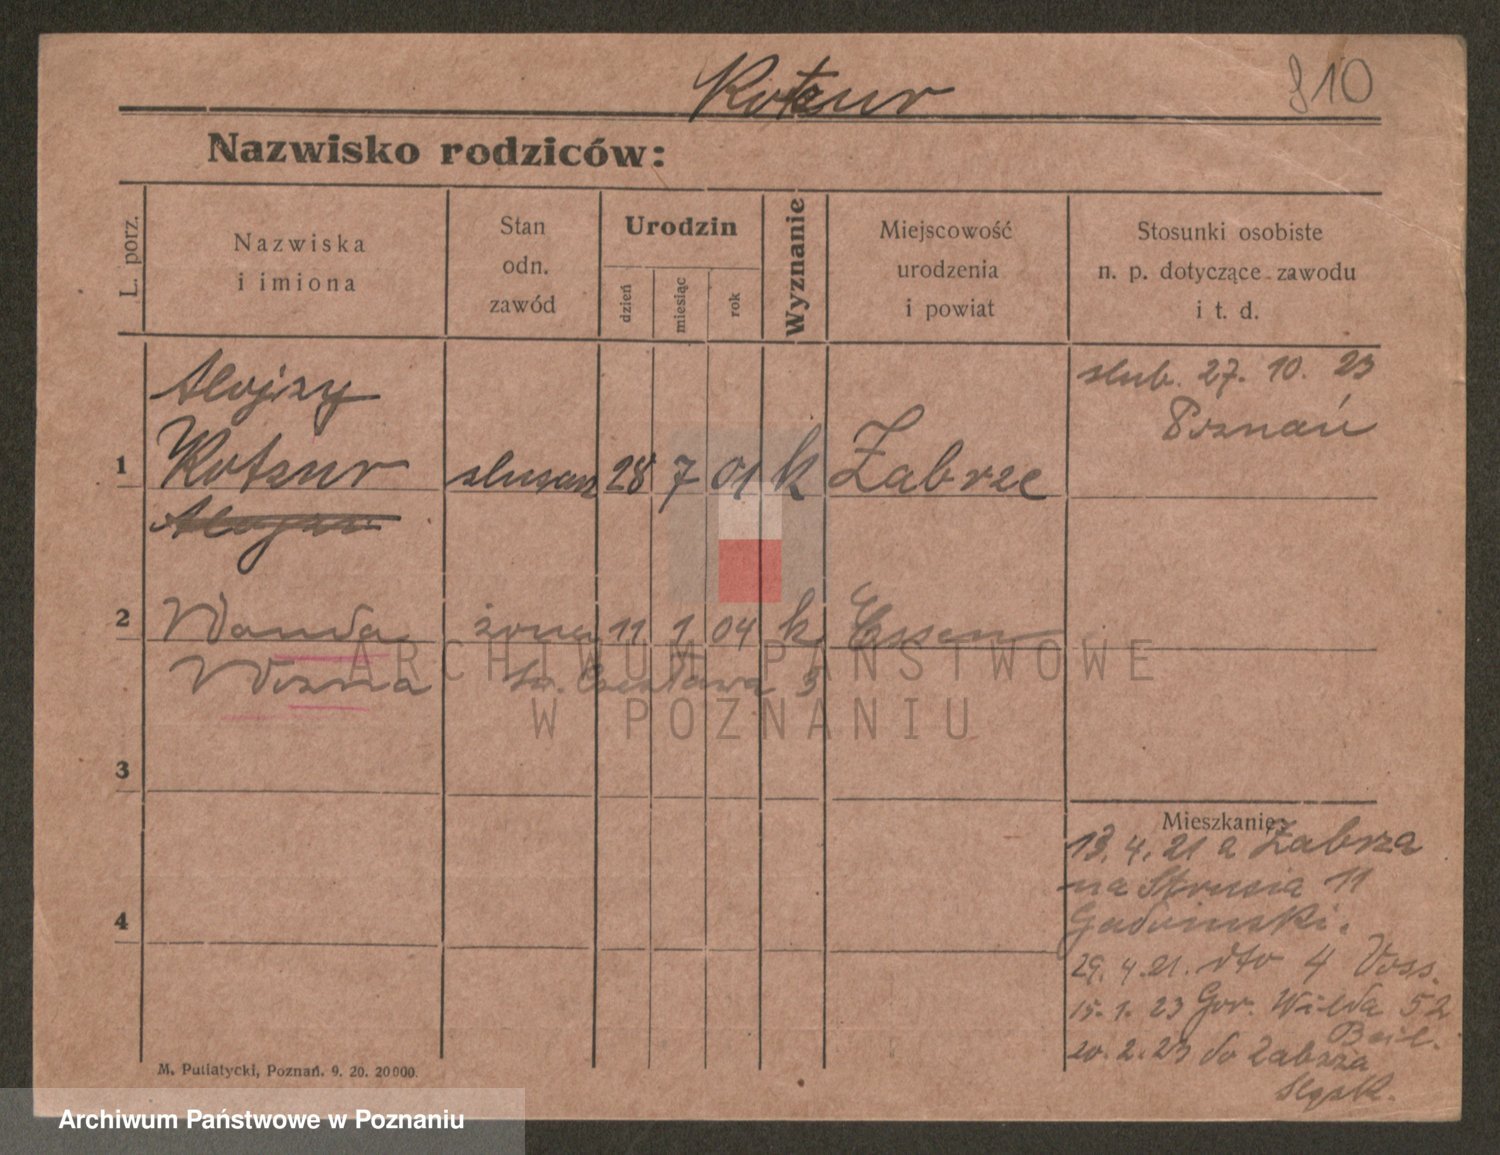 Kotzur
910
Nazwisko rodziców:
L. porz.
Nazwiska
i imiona
Stan
odn.
zawód
Urodzin
dzień
miesiąc
rok
Wyznanie
Miejscowość
urodzenia
i powiat
Stosunki osobiste
n. p. dotyczące zawodu
i t. d.
1
Alojzy
Kotzur
ślusarz 28 7 01 k Zabrze
Alojzy
ślub. 27. 10. 23
Poznań
2
Wanda żona 11 1 04 k Essen
Woźna św. Czesława 3
3
4
Mieszkanie:
13. 4. 21 z Zabrza
na Strusia 11
29. 4. 21. dto 4 Voss.
15. 1. 23 Gór. Wilda 52
20. 2. 23 do Zabrza
Śląsk.
M. Putiatycki, Poznań. 9. 20. 20000.
ARCHIWUM PAŃSTWOWE
W POZNANIU
Archiwum Państwowe w Poznaniu